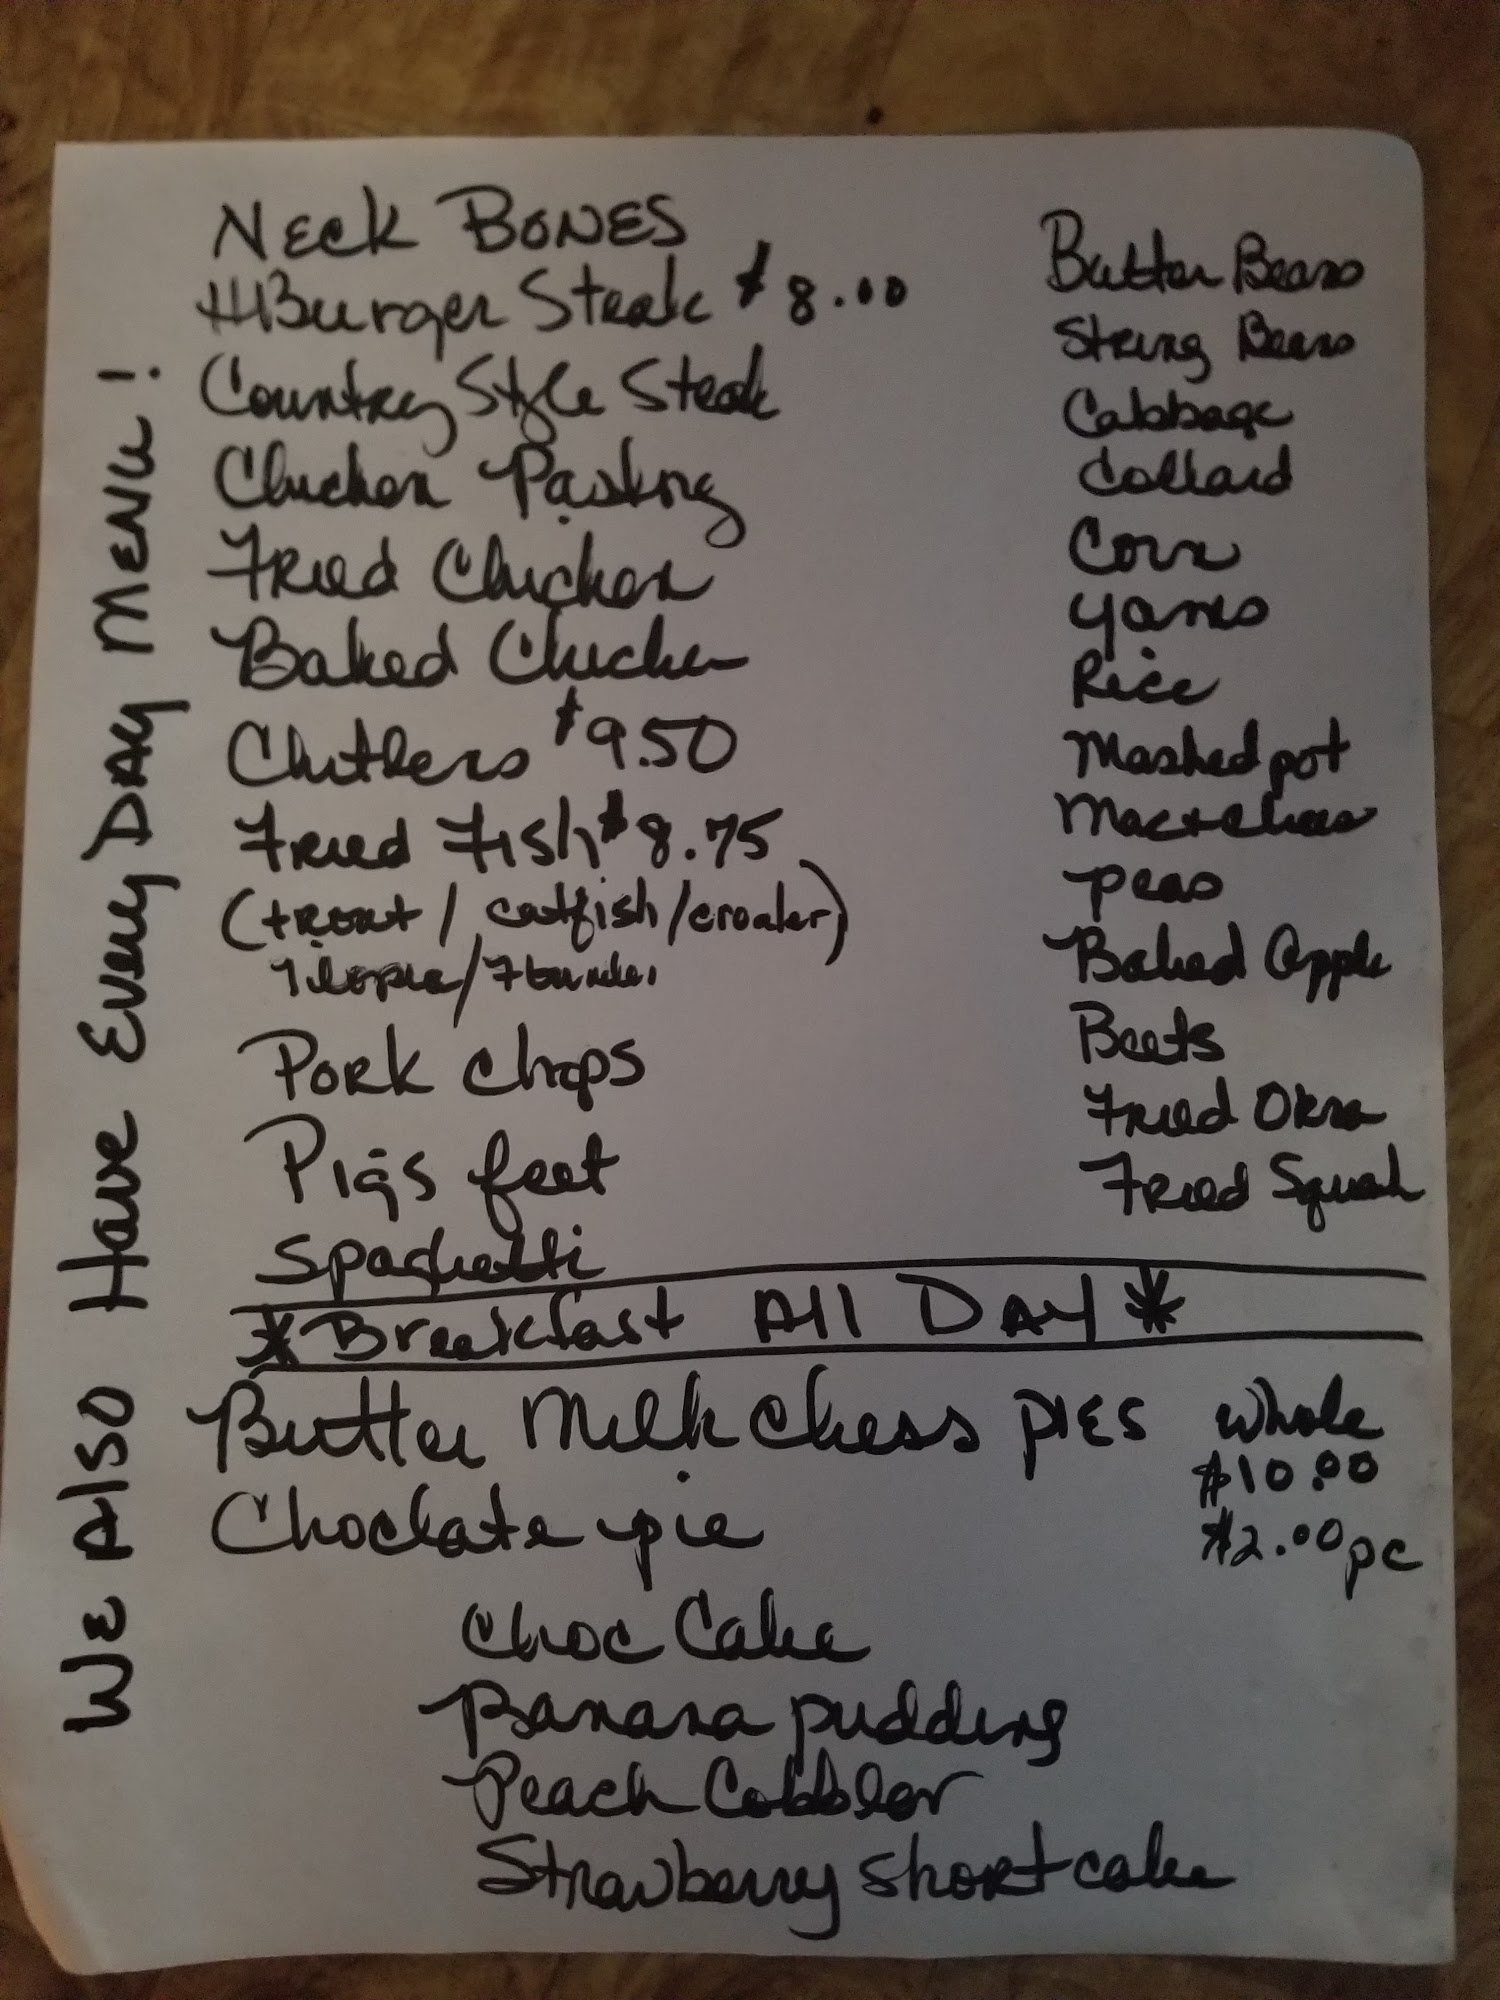 We Also Have Every Day Menu!
Neck Bones
HBurger Steak $8.00
Country Style Steak
Chicken Pastry
Fried Chicken
Baked Chicken
Chitlers $9.50
Fried Fish $8.75
(trout / catfish / croaker)
Tilopia / Flounder
Pork Chops
Pigs feet
Spaghetti
Butter Beans
String Beans
Cabbage
Collard
Corn
Yams
Rice
Mashed pot
Mac + Chees
Peas
Baked Apple
Beets
Fried Okra
Fried Squash
*Breakfast All Day*
Butter Milk Chess Pies Whole
$10.00
Choclate pie $2.00 pc
Choc Cake
Banana pudding
Peach Cobbler
Strawberry Shortcake